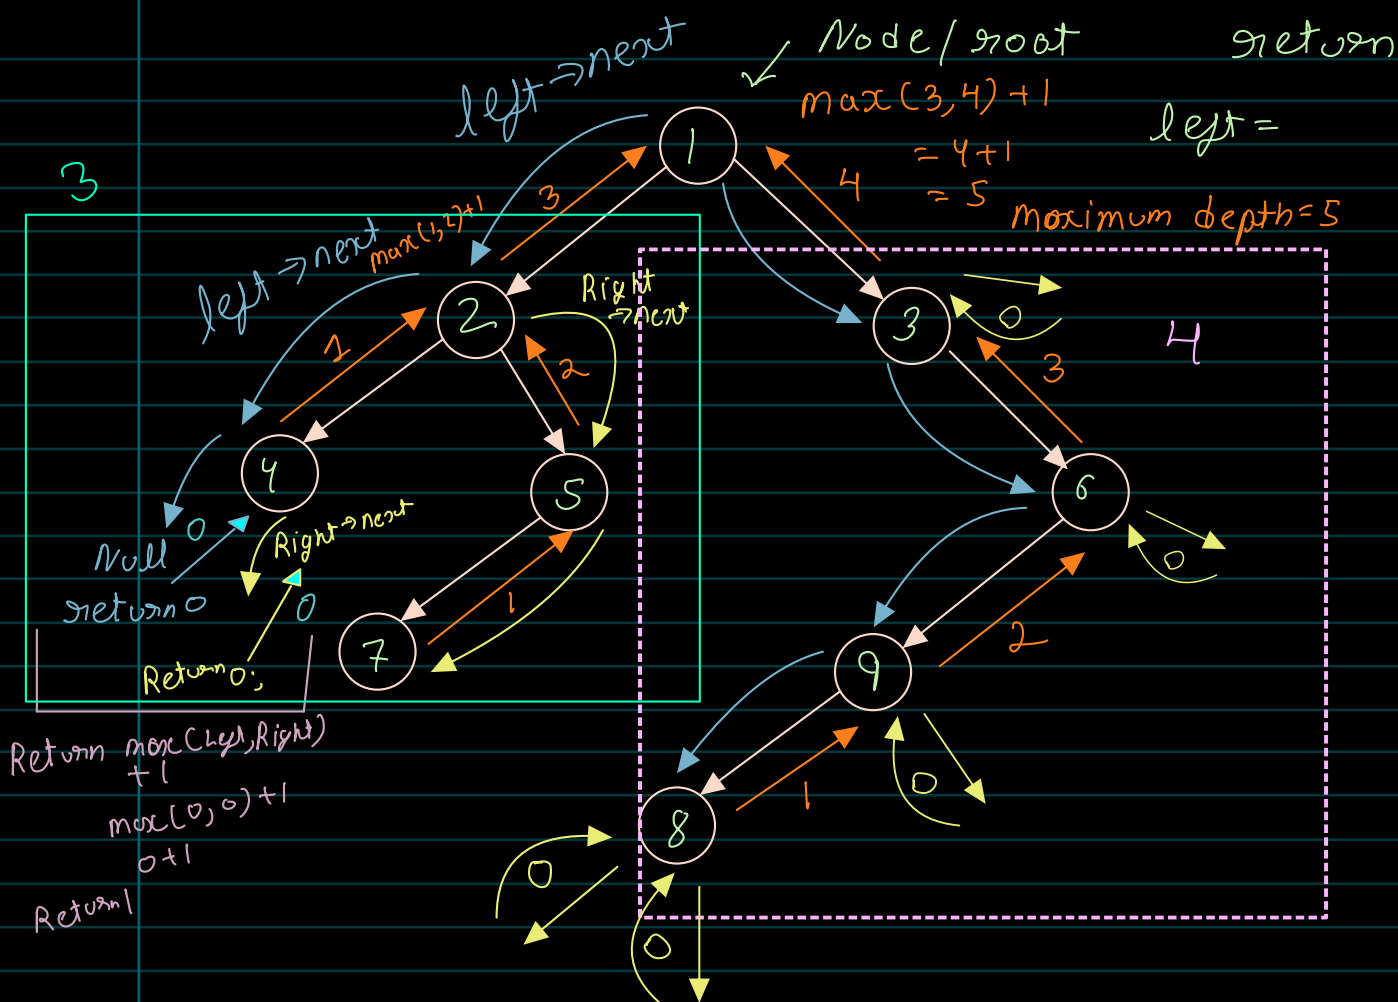 left→next
Node/root
return
max(3,4)+1
left=
=4+1
=5
maximum depth=5
3
1
3
4
left→next
max(1,2)+1
Right
→next
2
3
0
4
1
2
3
4
5
6
0
Null
0
Right→next
return 0
0
7
1
2
9
Return 0;
Return max(Left,Right)
+1
max(0,0)+1
0+1
Return 1
8
1
0
0
0